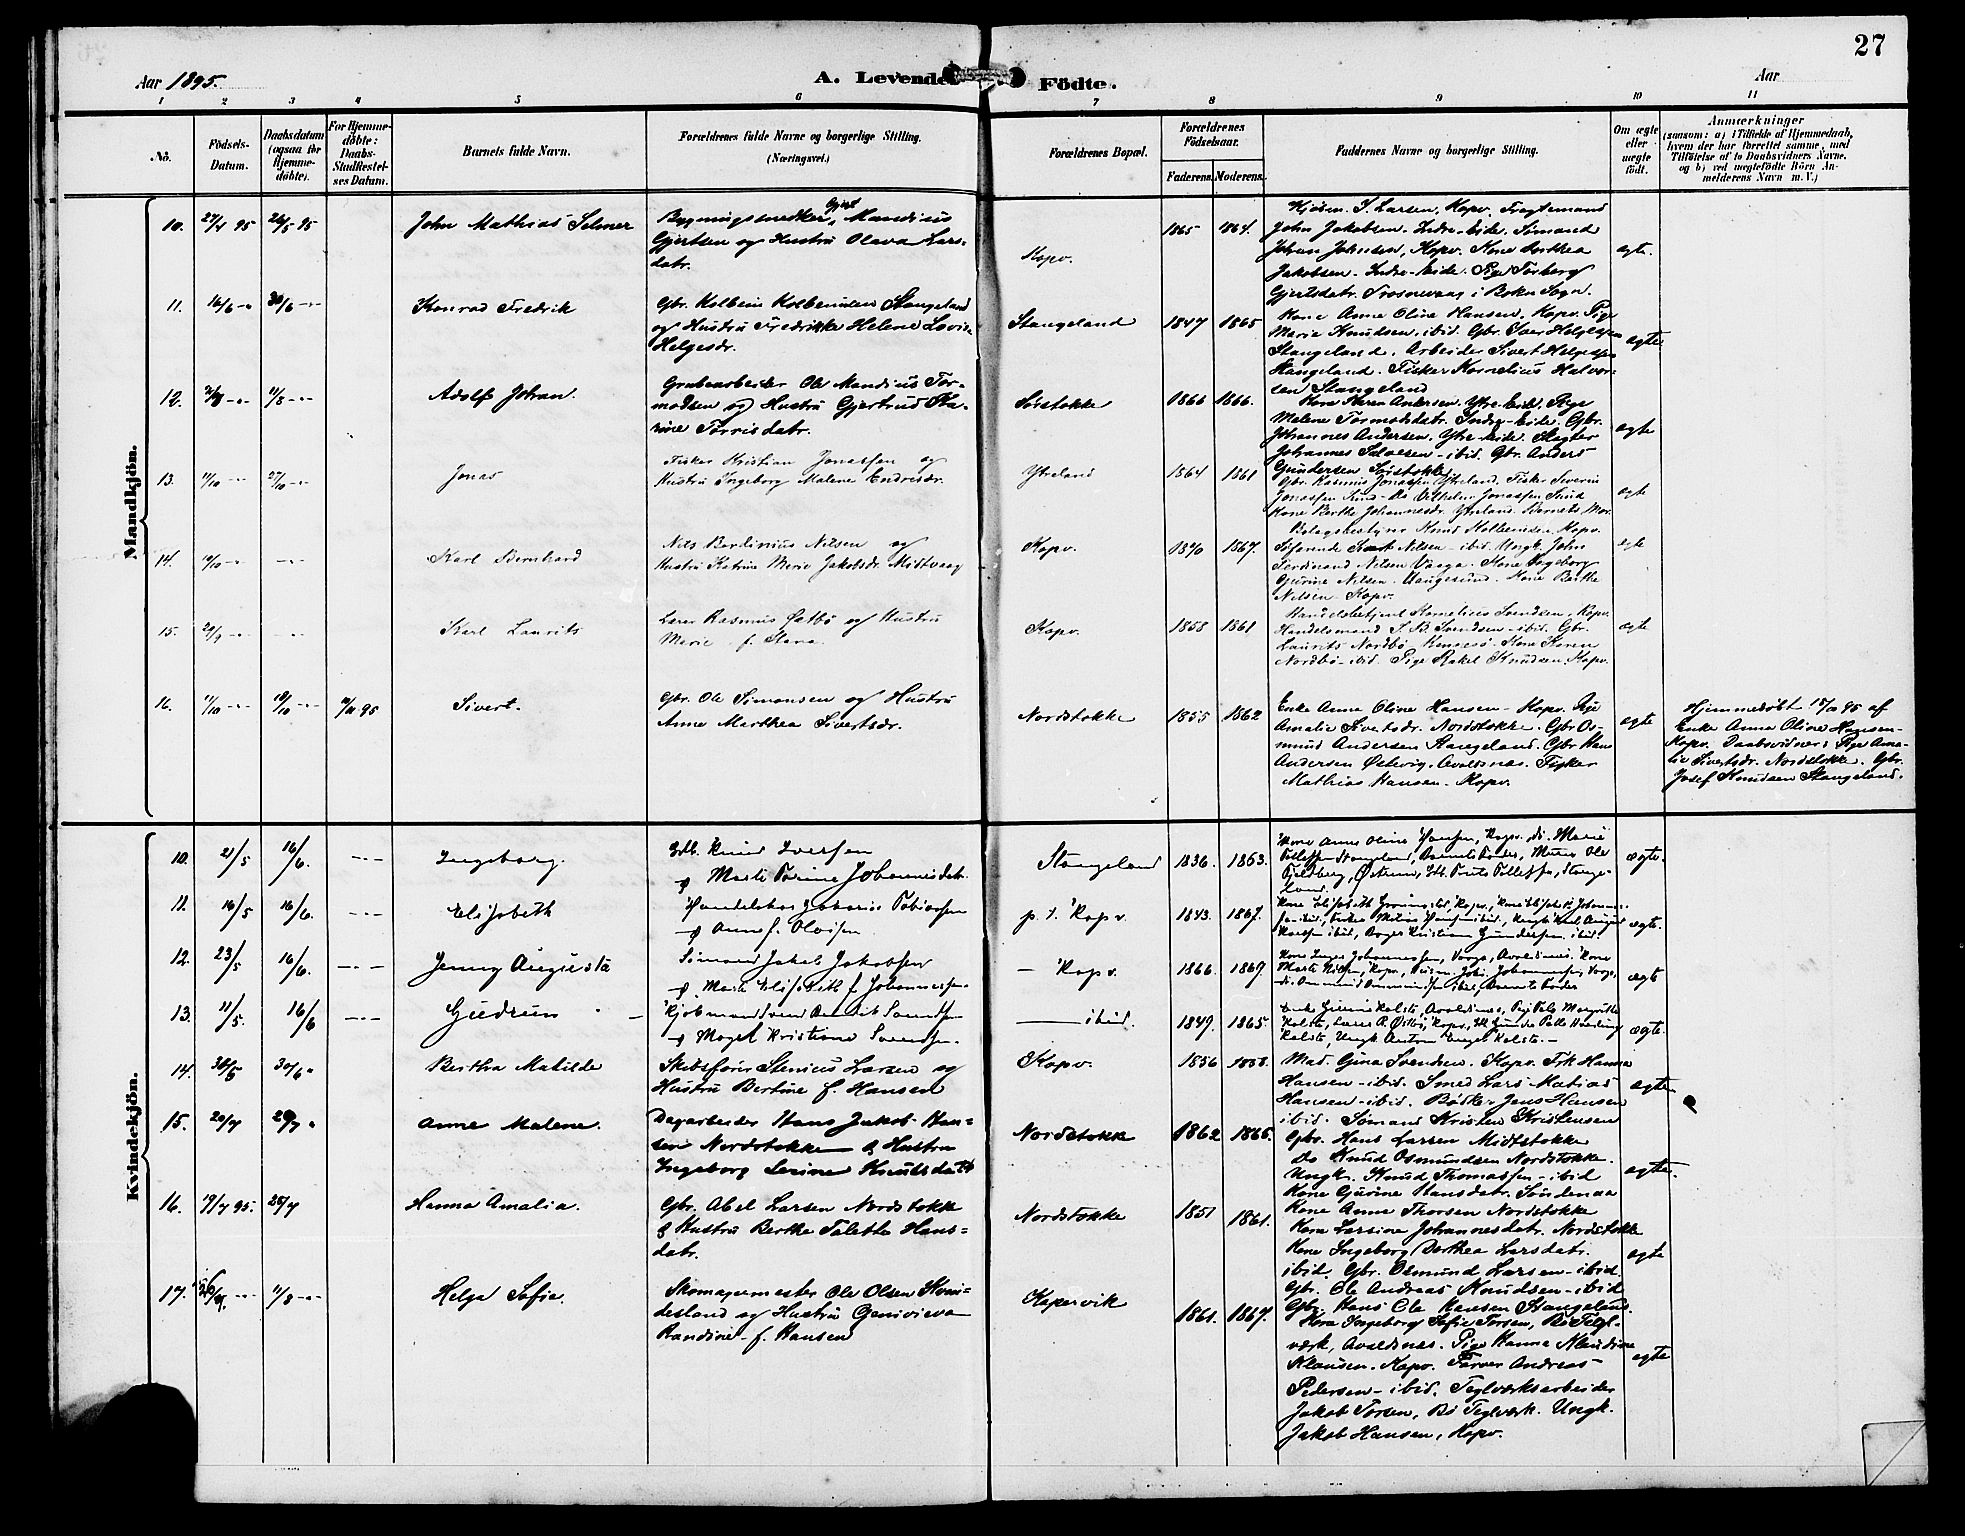 27
Aar 1895.
A. Levende Födte.
Aar
1 2 3 4 5 6 7 8 9 10 11
No.
Födsels-Datum.
Daabsdatum (ogsaa for Hjemme-döbte).
For Hjemme-döbte: Daabs-Stadfæstel-ses Datum.
Barnets fulde Navn.
Forældrenes fulde Navne og borgerlige Stilling.
(Næringsvei.)
Forældrenes Bopæl.
Forældrenes Födselsaar.
Faderens. Moderens.
Faddernes Navne og borgerlige Stilling.
Om ægte eller uægte födt.
Anmærkninger
(saasom: a) i Tilfælde af Hjemmedaab,
hvem der har forrettet samme, med
Tilföielse af to Daabsvidners Navne,
og b) ved uægtefödte Börn An-
melderens Navn m. V.)
Mandkjön.
10. 27/4 95 26/5 95 John Mathias Selmer
Bygningssnedker Gjert Mandius
Gjertsen og Hustru Olava Lars-
datr.
Kopv. 1865 1864.
S. Larsen, Kopv. Fragtemand
John Jakobsen. Indre-Eide. Sömand
Johan Johnsen, Kopv. Kone Dorthea
Jakobsen. Indre-Eide. Pige Torborg
Gjertsdatr. Trosnevaag i Bokn Sogn.
ægte.
11. 16/6 -"- 30/6 -"- Konrad Fredrik
Gbr. Kolbein Kolbeinsen Stangeland
og Hustru Fredrikke Helene Lovise
Helgesdr.
Stangeland 1847 1865
Kone Anne Oline Hansen, Kopv. Pige
Marie Knudsen, ibid. Gbr. Sver Helgesen
Stangeland. Arbeider Sivert Helgesen
Stangeland. Fisker Kornelius Halvor-
sen Stangeland
ægte
12. -"- 11/8 -"- Adolf Johan.
Grubearbeider Ole Mandius Tor-
modsen og Hustru Gjertrud Ka-
rine Torrisdatr.
Sörstokke 1866 1866.
Kone Karen Andersen. Ytre-Eide. Pige
Malene Tormodsdatr. Indre-Eide. Gbr.
Johannes Andersen. Ytre-Eide. Slagter
Johannes Salvesen - ibid. Gbr. Anders
Gundersen Sörstokke
ægte
13. 11/10 -"- 27/10 -"- Jonas
Fisker Kristian Jonassen og
Hustru Ingeborg Malene Endresdr.
Ytreland 1864 1861
Gbr. Rasmus Jonassen Ytreland. Fisker Severin
Jonassen Sund - Do Vilhelm Jonassen Sund
Kone Berthe Johannesdr. Ytreland. Barnets Mor.
ægte
14. 10/10 -"- -"- Karl Bernhard
Nils Berdinius Nilsen og
Hustru Katrine Marie Jakobsdr. Midtvaag
Kopv. 1870 1867.
Bolagsbestyrer Knud Kolbeinsen. Kopv.
Söfarende Nilsen - ibid. Ungk. John
Ferdinand Nilsen Vaaga. Kone Ingeborg
Gurine Nilsen. Haugesund. Kone Berthe
Nilsen - Kopv.
ægte
15. 20/9 -"- -"- Karl Laurits
Lærer Rasmus Östbö og Hustru
Marie f. Stava
Kopv. 1858 1861
Handelsbetjent Kornelius Svendsen, Kopv.
Handelsmand S. B. Svendsen - ibid. Gbr.
Laurits Nordbö Rennesö. Kone Karen
Nordbö - ibid. Pige Rakel Knudsen. Kopv.
ægte
16. 11/10 -"- 10/10 -"- 95 Sivert.
Gbr. Ole Simonsen og Hustru
Anne Marthea Sivertsdr.
Nordstokke 1855 1862
Enke Anne Oline Hansen - Kopv. Pige
Amalie Sivertsdr. Nordstokke. Gbr. Os-
mund Andersen Stangeland. Gbr. Hans
Andersen Östevig, Avaldsnes. Fisker
Mathias Hansen - Kopv.
ægte
Hjemmedöbt 95 af
Enke Anne Oline Hansen -
Kopv. Daabsvidner: Pige Ama-
lie Sivertsdr. Nordstokke. Gbr.
Josef Knudsen Stangeland.
Kvindekjön.
10. 21/5 16/6. -"- Ingeborg.
Knud Iversen
og Marte Torine Johannesdtr.
Stangeland 1836. 1863.
Kone Anne Oline Hansen, Kopv. do. Marie
Tollefsen Stangeland, Barnets Fader,
Tollefsen, Stange-
land.
ægte.
11. 16/5 16/6. Elisabeth
Handelsbor. Zakarias Tobiassen
og Anne f. Olsen.
p. t. Kopv. 1843. 1867.
Kone Elisabeth
Gundersen ibid.
ægte.
12. 23/5 16/6. -"- Jenny Augusta
Sömand Jakob Jakobsen
og Marte Elisabeth f. Johannessen.
- Kopv. 1866. 1869.
Kone Inger Johannessen, Vorge, Avaldsnes. Kone
Marte Nilsen, Kopv.
ægte
13. 11/5. 16/6 -"- Gudrun
Kjöbmand Svend Svendsen
og Kristiane Svendsen.
- ibid. 1849. 1865.
Kolstö, Lærer R. Östbö, Kopv.
Kolstö, Ungk. Anton Kolstö. -
ægte.
14. 30/5 30/6 " Bertha Matilde
Skibsförer Stenius Larsen og
Hustru Bertine f. Hansen
Kopv. 1856 1858.
Mad. Gina Svendsen. Kopv. Frk Hanna
Hansen - ibid. Smed Lars Matias
Hansen - ibid. Bödker Jens Hansen
ibid. Sömand Kristen Kristensen
ægte
15. 20/7 29/7 " Anne Malene.
Dagarbeider Hans Jakob Han-
sen Nordstokke & Hustru
Ingeborg Serine Knutsdatr
Nordstokk 1862 1865.
Gbr. Hans Larsen Midtstokke
Do Knud Osmundsen Nordstokke.
Ungk. Knud Thomassen - ibid
Kone Gurine Hansdatr. Söndenaa
ægte.
16. 19/7 95. 28/7 Hanna Amalia.
Gbr. Abel Larsen Nordstokke
& Hustru Berthe Talette Hans-
datr.
Nordstokke 1851 1861.
Kone Anna Thorsen Nordstokke
Kone Larsine Johannesdatr. Nordstokke
Kone Ingeborg Dorthea Larsdatr.
ibid. Gbr. Osmund Larsen - ibid
Gbr. Ole Andreas Knudsen - ibid
Gbr. Hans Ole Hansen Stangeland.
ægte
17. -"- 11/8 -"- Helga Sofie.
Skomagermester Ole Olsen Kvin-
desland og Hustru Genivieva
Randine - f. Hansen
Kopervik 1861. 1867.
Kone Ingeborg Sofie Torsen, Bö Tegl-
værk, Avaldsnes. Pige Hanna Klaudine
Klausen. Kopv. Farver Andreas
Pedersen - ibid. Teglværksarbeider
Jakob Torsen, Bö Teglværk. Ungk.
Jakob Hansen, Kopv.
ægte